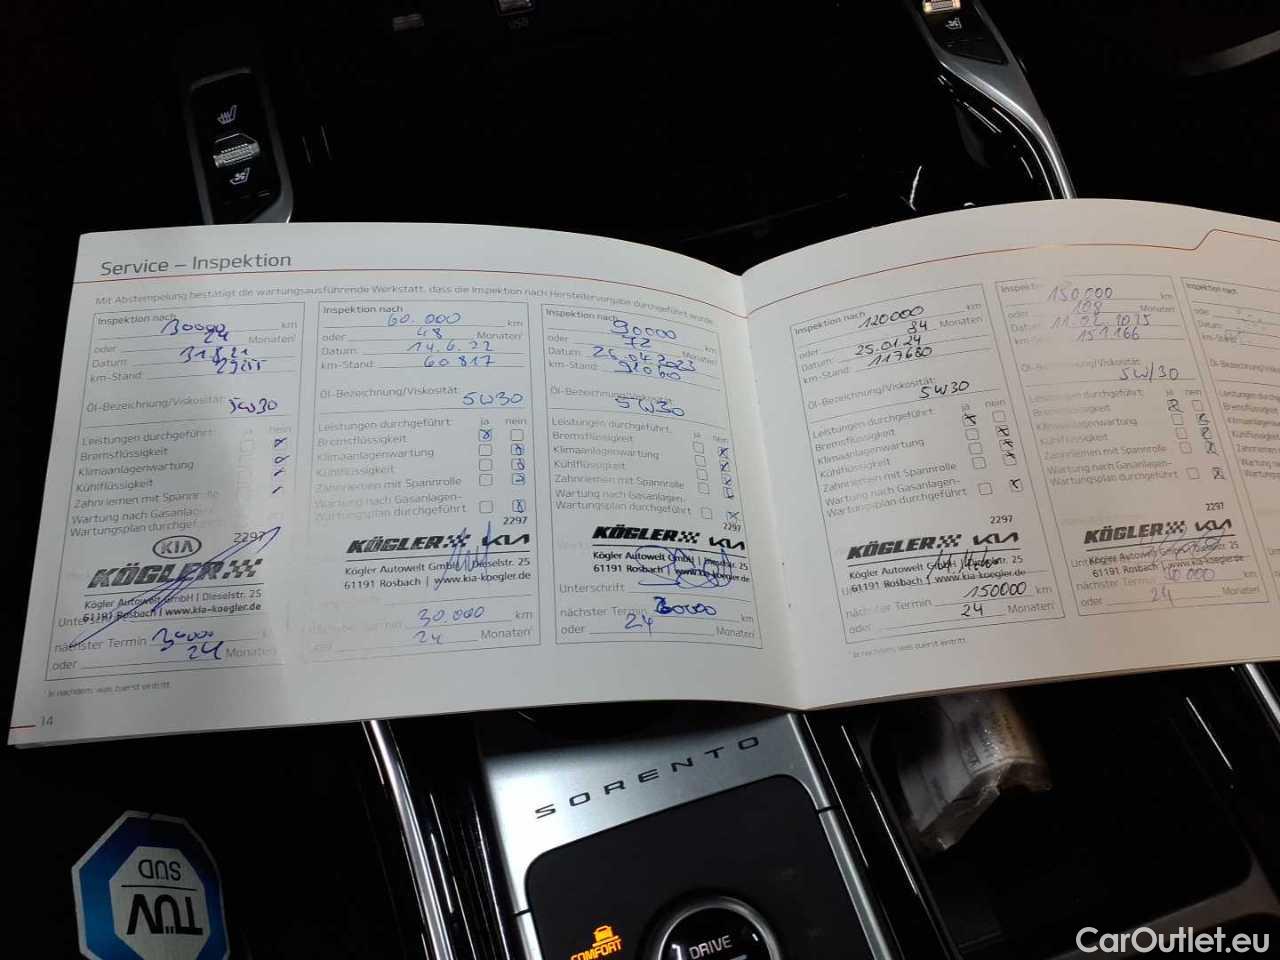 USB
Service – Inspektion
Mit Abstempelung bestätigt die wartungsausführende Werkstatt, dass die Inspektion nach Herstellervorgabe durchgeführt wurde.
Inspektion nach
30000 km
oder 24 Monaten¹
Datum: 31.8.21
km-Stand:
Öl-Bezeichnung/Viskosität:
5W30
Leistungen durchgeführt: ja nein
Bremsflüssigkeit
Klimaanlagenwartung
Kühlflüssigkeit
Zahnriemen mit Spannrolle
Wartung nach Gasanlagen-
Wartungsplan durchgeführt
2297
KIA
KÖGLER
Kögler Autowelt GmbH | Dieselstr. 25
61191 Rosbach | www.kia-koegler.de
nächster Termin 30000
oder 24 Monaten¹
¹ Je nachdem, was zuerst eintritt.
14
Inspektion nach
60.000 km
oder 48 Monaten¹
Datum: 14.6.22
km-Stand: 60.817
Öl-Bezeichnung/Viskosität:
5W30
Leistungen durchgeführt: ja nein
Bremsflüssigkeit
Klimaanlagenwartung
Kühlflüssigkeit
Zahnriemen mit Spannrolle
Wartung nach Gasanlagen-
Wartungsplan durchgeführt
2297
KÖGLER KIA
Kögler Autowelt GmbH | Dieselstr. 25
61191 Rosbach | www.kia-koegler.de
nächster Termin 30.000 km
oder 24 Monaten¹
Inspektion nach
90000 km
oder 72 Monaten¹
Datum: 26.04.2023
km-Stand:
Öl-Bezeichnung/Viskosität:
5W30
Leistungen durchgeführt: ja nein
Bremsflüssigkeit
Klimaanlagenwartung
Kühlflüssigkeit
Zahnriemen mit Spannrolle
Wartung nach Gasanlagen-
Wartungsplan durchgeführt
2297
KÖGLER KIA
Kögler Autowelt GmbH | Dieselstr. 25
61191 Rosbach | www.kia-koegler.de
Unterschrift
nächster Termin 30000 km
oder 24 Monaten¹
Inspektion nach
120000 km
oder 84 Monaten¹
Datum: 25.01.24
km-Stand: 117680
Öl-Bezeichnung/Viskosität:
5W30
Leistungen durchgeführt: ja nein
Bremsflüssigkeit
Klimaanlagenwartung
Kühlflüssigkeit
Zahnriemen mit Spannrolle
Wartung nach Gasanlagen-
Wartungsplan durchgeführt
2297
KÖGLER KIA
Kögler Autowelt GmbH | Dieselstr. 25
61191 Rosbach | www.kia-koegler.de
nächster Termin 150000 km
oder 24 Monaten¹
¹ Je nachdem, was zuerst eintritt.
Inspektion nach
150000 km
oder 108 Monaten¹
Datum: 11.02.2025
km-Stand: 151.166
Öl-Bezeichnung/Viskosität:
5W/30
Leistungen durchgeführt: ja nein
Bremsflüssigkeit
Klimaanlagenwartung
Kühlflüssigkeit
Zahnriemen mit Spannrolle
Wartung nach Gasanlagen-
Wartungsplan durchgeführt
2297
KÖGLER KIA
Kögler Autowelt GmbH | Dieselstr. 25
61191 Rosbach | www.kia-koegler.de
nächster Termin 30000 km
oder 24 Monaten¹
Inspektion nach
oder
Datum:
km-Stand:
SORENTO
COMFORT
DRIVE
TÜV
SÜD
CarOutlet.eu